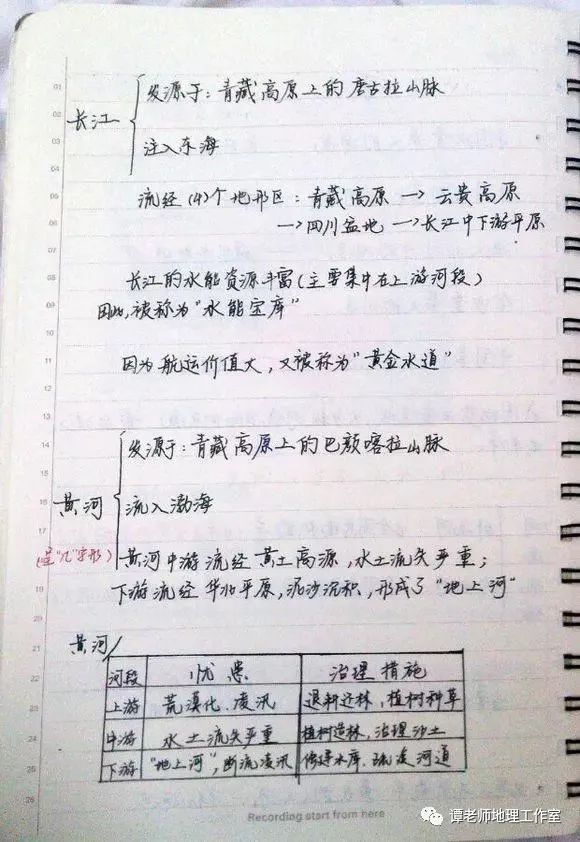 发源于：青藏高原上的唐古拉山脉
长江
注入东海
流经（4）个地形区：青藏高原 → 云贵高原
→四川盆地 →长江中下游平原
长江的水能资源丰富（主要集中在上游河段）
因此，被称为“水能宝库”
因为航运价值大，又被称为“黄金水道”
发源于：青藏高原上的巴颜喀拉山脉
黄河
流入渤海
（呈“几”字形）
黄河中游流经黄土高源，水土流失严重；
下游流经华北平原，泥沙沉积，形成了“地上河”
黄河
河段 忧患 治理措施
上游 荒漠化、凌汛 退耕还林，植树种草
中游 水土流失严重 植树造林，治理沙土
下游 “地上河”，断流凌汛 修建水库、疏浚河道
Recording start from here
谭老师地理工作室
01
02
03
04
05
06
07
08
09
10
11
12
13
14
15
16
17
18
19
20
21
22
23
24
25
26